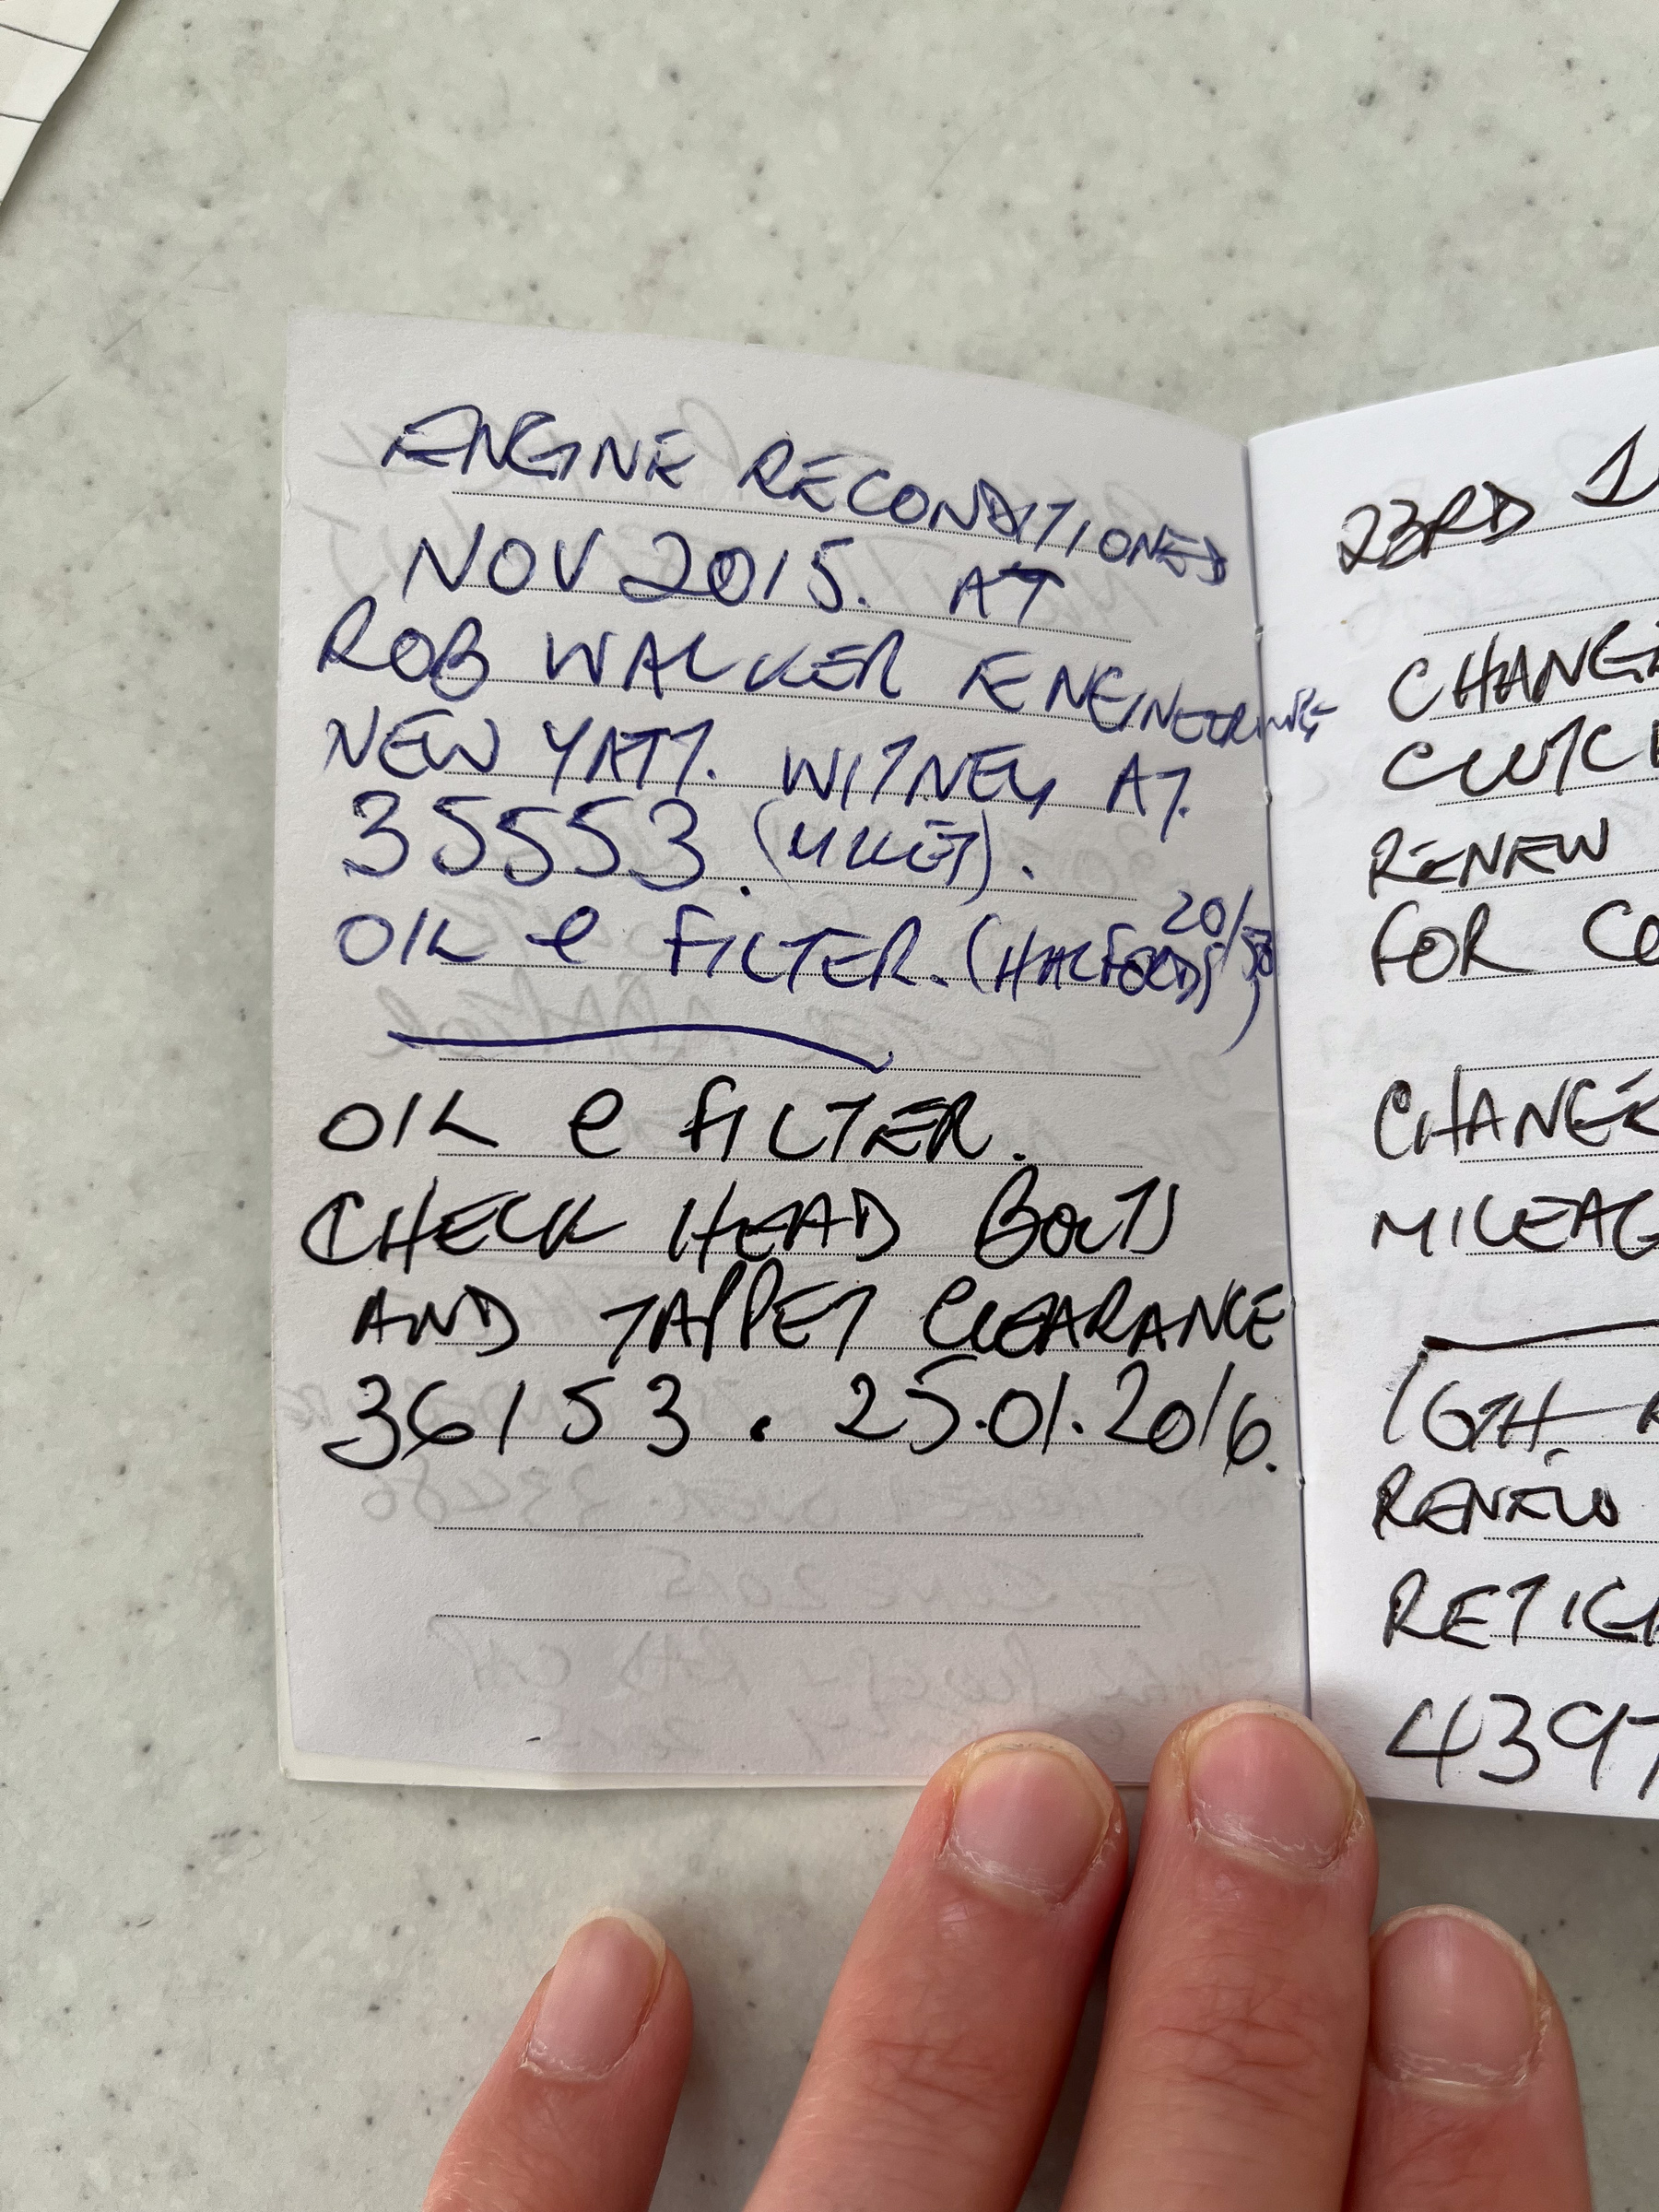 ENGINE RECONDITIONED
NOV 2015. AT
ROB WALKER ENGINEERING
NEW YATT. WITNEY AT.
35553. (MILES).
OIL & FILTER. (HALFORDS 20/50)
OIL & FILTER.
CHECK HEAD BOLTS
AND TAPPET CLEARANCE
36153. 25.01.2016.
23RD
RENEW
FOR
16TH.
RENEW